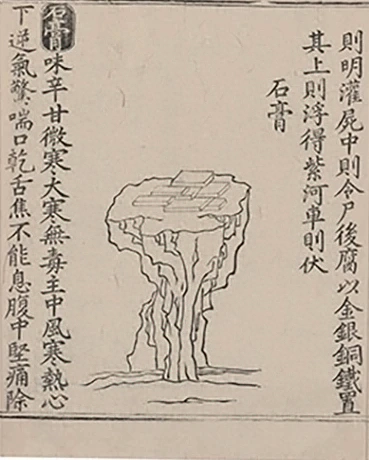 則明灌屍中則令尸後腐以金銀銅鐵置
其上則浮得紫河車則伏
石膏
石膏味辛甘微寒大寒無毒主中風寒熱心
下逆氣驚喘口乾舌焦不能息腹中堅痛除